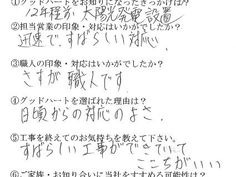 ①グッドハートをお知りになったきっかけは？
12年程前 太陽光発電 設置
②担当営業の印象・対応はいかがでしたか？
迅速で、すばらしい対応。
③職人の印象・対応はいかがでしたか？
さすが 職人です。
④グッドハートを選ばれた理由は？
日頃からの対応のよさ。
⑤工事を終えてのお気持ちを教えて下さい。
すばらしい工事ができていて
ここちがいい
⑥ご家族・お知り合いに当社をすすめる可能性は？